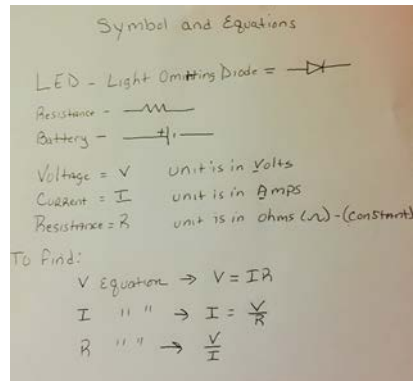 Symbol and Equations
LED - Light Omitting Diode =
Resistance -
Battery - + -
Voltage = V unit is in Volts
Current = I unit is in Amps
Resistance = R unit is in ohms (Ω) - (constant)
To find:
V Equation → V = IR
I " " → I = V/R
R " " → V/I